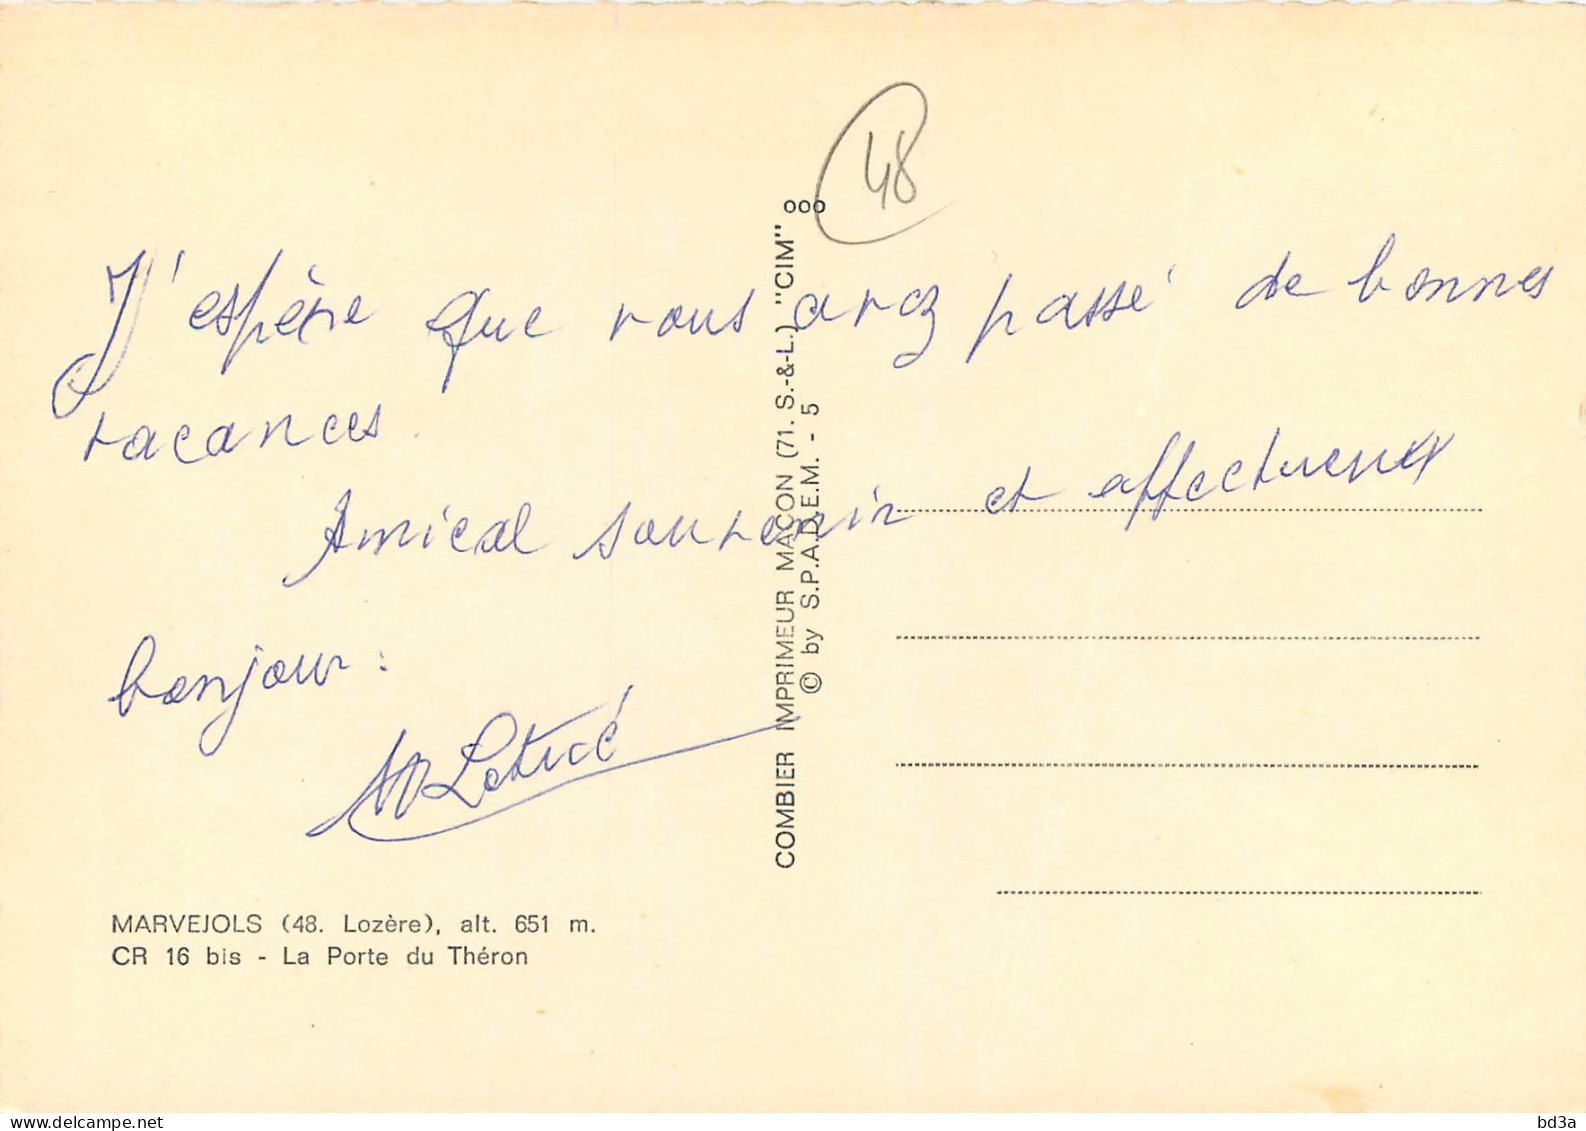 48
J'espère que vous avez passé de bonnes
vacances.
Amical souvenir et affectueux
bonjour.
COMBIER IMPRIMEUR MACON (71. S.-&-L.) "CIM" ooo
© by S.P.A.D.E.M. - 5
MARVEJOLS (48. Lozère), alt. 651 m.
CR 16 bis - La Porte du Théron
www.delcampe.net
bd3a